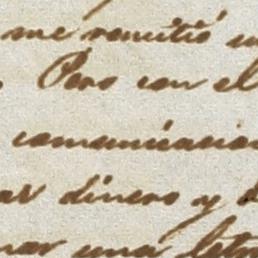 me remitió
Pero con el
comunicacion
ar dinero y
nar una letra